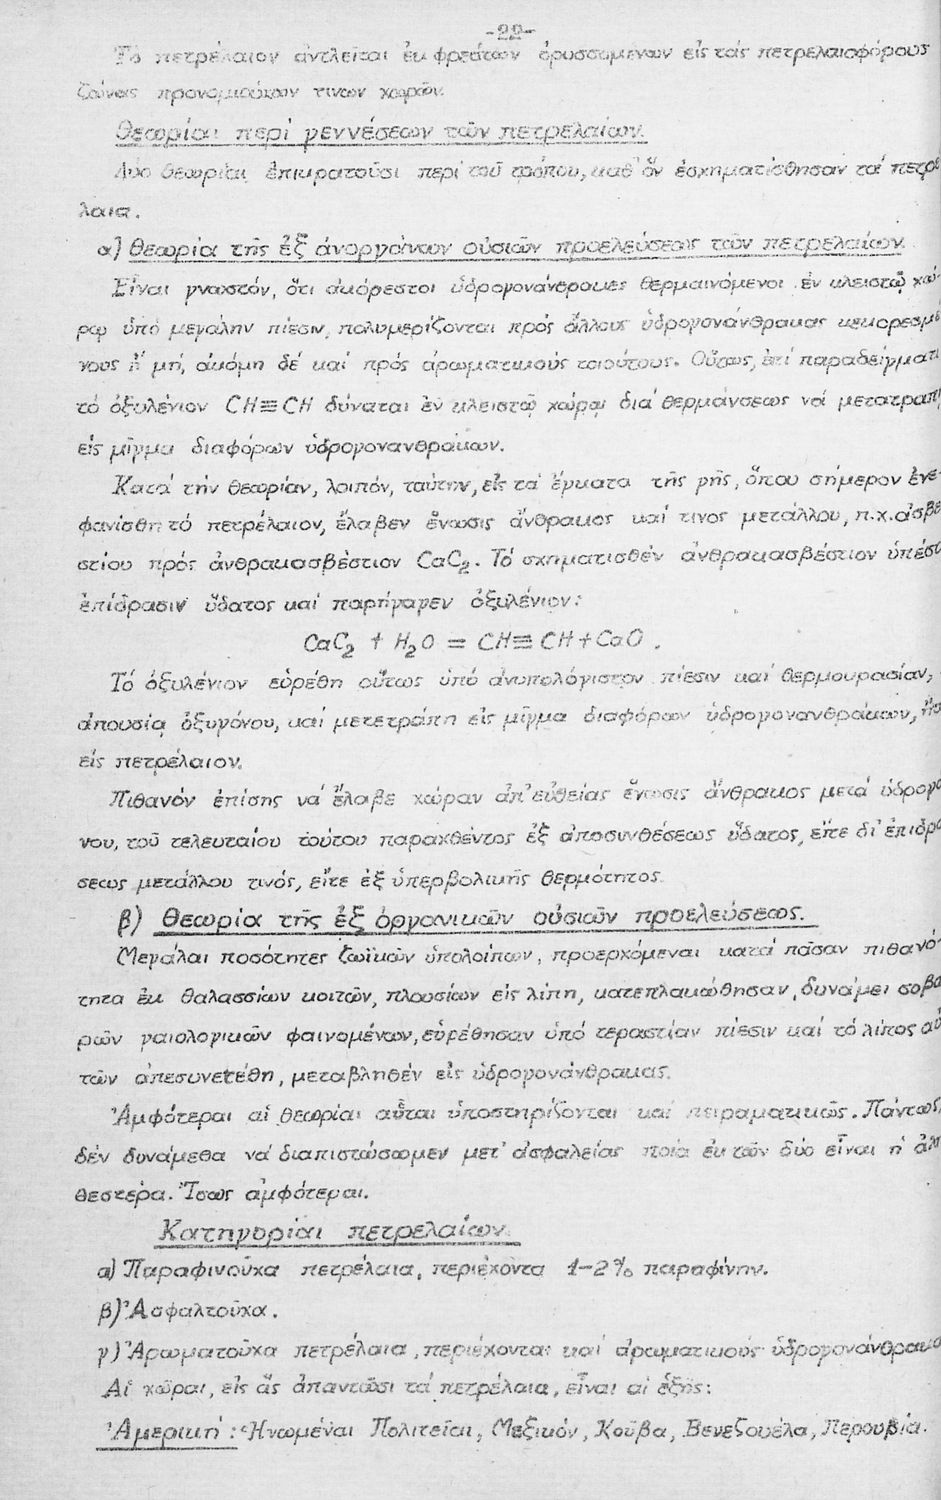 -22-
Τό πετρέλαιον ἀντλεῖται ἐκ φρεάτων ὀρυσσομένων εἰς τάς πετρελαιοφόρους
ζώνας προνομιούχων τινων χωρῶν.
Θεωρίαι περί γεννέσεως τῶν πετρελαίων.
Δύο θεωρίαι ἐπικρατοῦσι περί τοῦ τρόπου, καθ' ὅν ἐσχηματίσθησαν τά πετρέ
λαια.
α) Θεωρία τῆς ἐξ ἀνοργάνων οὐσιῶν προελεύσεως τῶν πετρελαίων.
Εἶναι γνωστόν, ὅτι ἀκόρεστοι ὑδρογονάνθρακες θερμαινόμενοι ἐν κλειστῷ χώ-
ρῳ ὑπό μεγάλην πίεσιν, πολυμερίζονται πρός ἄλλους ὑδρογονάνθρακας κεκορεσμέ
νους ἤ μή, ἀκόμη δέ καί πρός ἀρωματικούς τοιούτους. Οὕτως, ἐπί παραδείγματι
τό ὀξυλένιον CH≡CH δύναται ἐν κλειστῷ χώρῳ διά θερμάνσεως νά μετατραπῇ
εἰς μῖγμα διαφόρων ὑδρογονανθράκων.
Κατά τήν θεωρίαν, λοιπόν, ταύτην, εἰς τά ἔγκατα τῆς γῆς, ὅπου σήμερον ἐνε-
φανίσθη τό πετρέλαιον, ἔλαβεν ἕνωσις ἄνθρακος καί τινος μετάλλου, π.χ. ἀσβε
στίου πρός ἀνθρακασβέστιον CaC₂. Τό σχηματισθέν ἀνθρακασβέστιον ὑπέστη
ἐπίδρασιν ὕδατος καί παρήγαγεν ὀξυλένιον:
CaC₂ + H₂O = CH≡CH+CaO.
Τό ὀξυλένιον εὑρέθη οὕτως ὑπό ἀνυπολόγιστον πίεσιν καί θερμοκρασίαν,
ἀπουσίᾳ ὀξυγόνου, καί μετετράπη εἰς μῖγμα διαφόρων ὑδρογονανθράκων, ἤτοι
εἰς πετρέλαιον.
Πιθανόν ἐπίσης νά ἔλαβε χώραν ἀπ' εὐθείας ἕνωσις ἄνθρακος μετά ὑδρογό
νου, τοῦ τελευταίου τούτου παραχθέντος ἐξ ἀποσυνθέσεως ὕδατος, εἴτε δι' ἐπιδρά
σεως μετάλλου τινός, εἴτε ἐξ ὑπερβολικῆς θερμότητος.
β) Θεωρία τῆς ἐξ ὀργανικῶν οὐσιῶν προελεύσεως.
Μεγάλαι ποσότητες ζωϊκῶν ὑπολοίπων, προερχόμεναι κατά πᾶσαν πιθανό-
τητα ἐκ θαλασσίων κοιτῶν, πλουσίων εἰς λίπη, κατεπλακώθησαν, δυνάμει σοβα
ρῶν γαιολογικῶν φαινομένων, εὑρέθησαν ὑπό τεραστίαν πίεσιν καί τό λίπος αὐ
τῶν ἀπεσυνετέθη, μεταβληθέν εἰς ὑδρογονάνθρακας.
Ἀμφότεραι αἱ θεωρίαι αὗται ὑποστηρίζονται καί πειραματικῶς. Πάντως,
δέν δυνάμεθα νά διαπιστώσωμεν μετ' ἀσφαλείας ποία ἐκ τῶν δύο εἶναι ἡ ἀλη
θεστέρα. Ἴσως ἀμφότεραι.
Κατηγορίαι πετρελαίων.
α) Παραφινοῦχα πετρέλαια, περιέχοντα 1-2% παραφίνην.
β) Ἀσφαλτοῦχα.
γ) Ἀρωματοῦχα πετρέλαια, περιέχοντα καί ἀρωματικούς ὑδρογονάνθρακα
Αἱ χῶραι, εἰς ἅς ἀπαντῶσι τά πετρέλαια, εἶναι αἱ ἑξῆς:
Ἀμερική: Ἡνωμέναι Πολιτεῖαι, Μεξικόν, Κούβα, Βενεζουέλα, Περουβία.